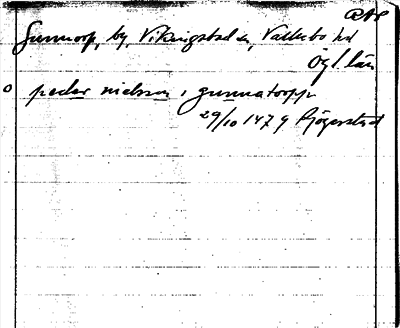 Gunnorp, by, Vikingstad sn, Valkebo hd
Ögl. län
o peder nielsson i gunnatorpp
29/10 1479 Sjögerstad